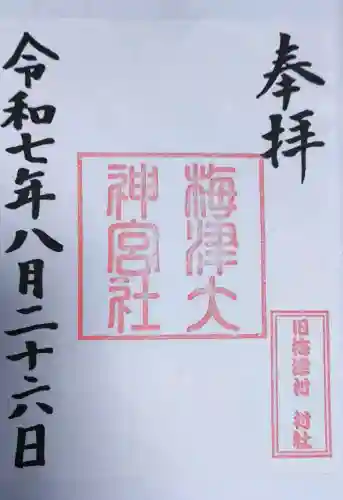 奉拝
旧梅津村 村社
梅津大
神宮社
令和七年八月二十六日